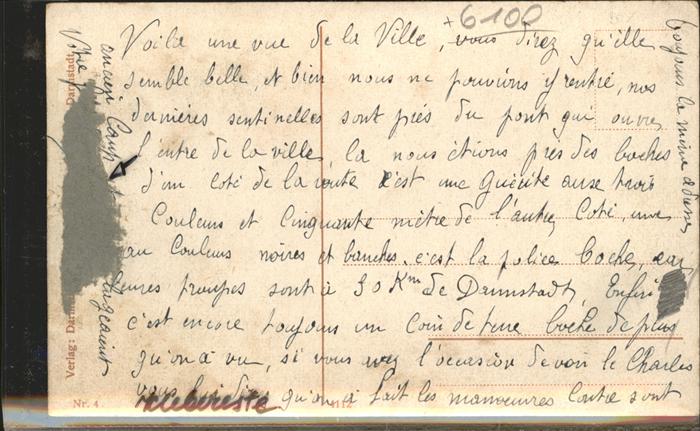 +6100
Voila une vue de la Ville, vous direz qu'ille
semble belle, et bien nous ne pouvions y rentré, nos
dernières sentinelles sont prés du pont qui ouvre
l'entre de la ville, la nous étions près des boches
d'un coté de la route c'est une Guérite aux trois
Couleurs et Cinquante mètre de l'autre Coté, une
au Couleurs noires et blanches c'est la police boche, car
leures troupes sont à 30 Km de Darmstadt, Enfin
c'est encore toujours un Coin de terre boche de plus
qu'on à vu, si vous avez l'occasion de voir le Charles
vous lui direz qu'on à fait les manœuvres Contre sont
ancien Camp
Votre
toujours la même adresse
Verlag: Darm
Darmstadt
Nr. 4